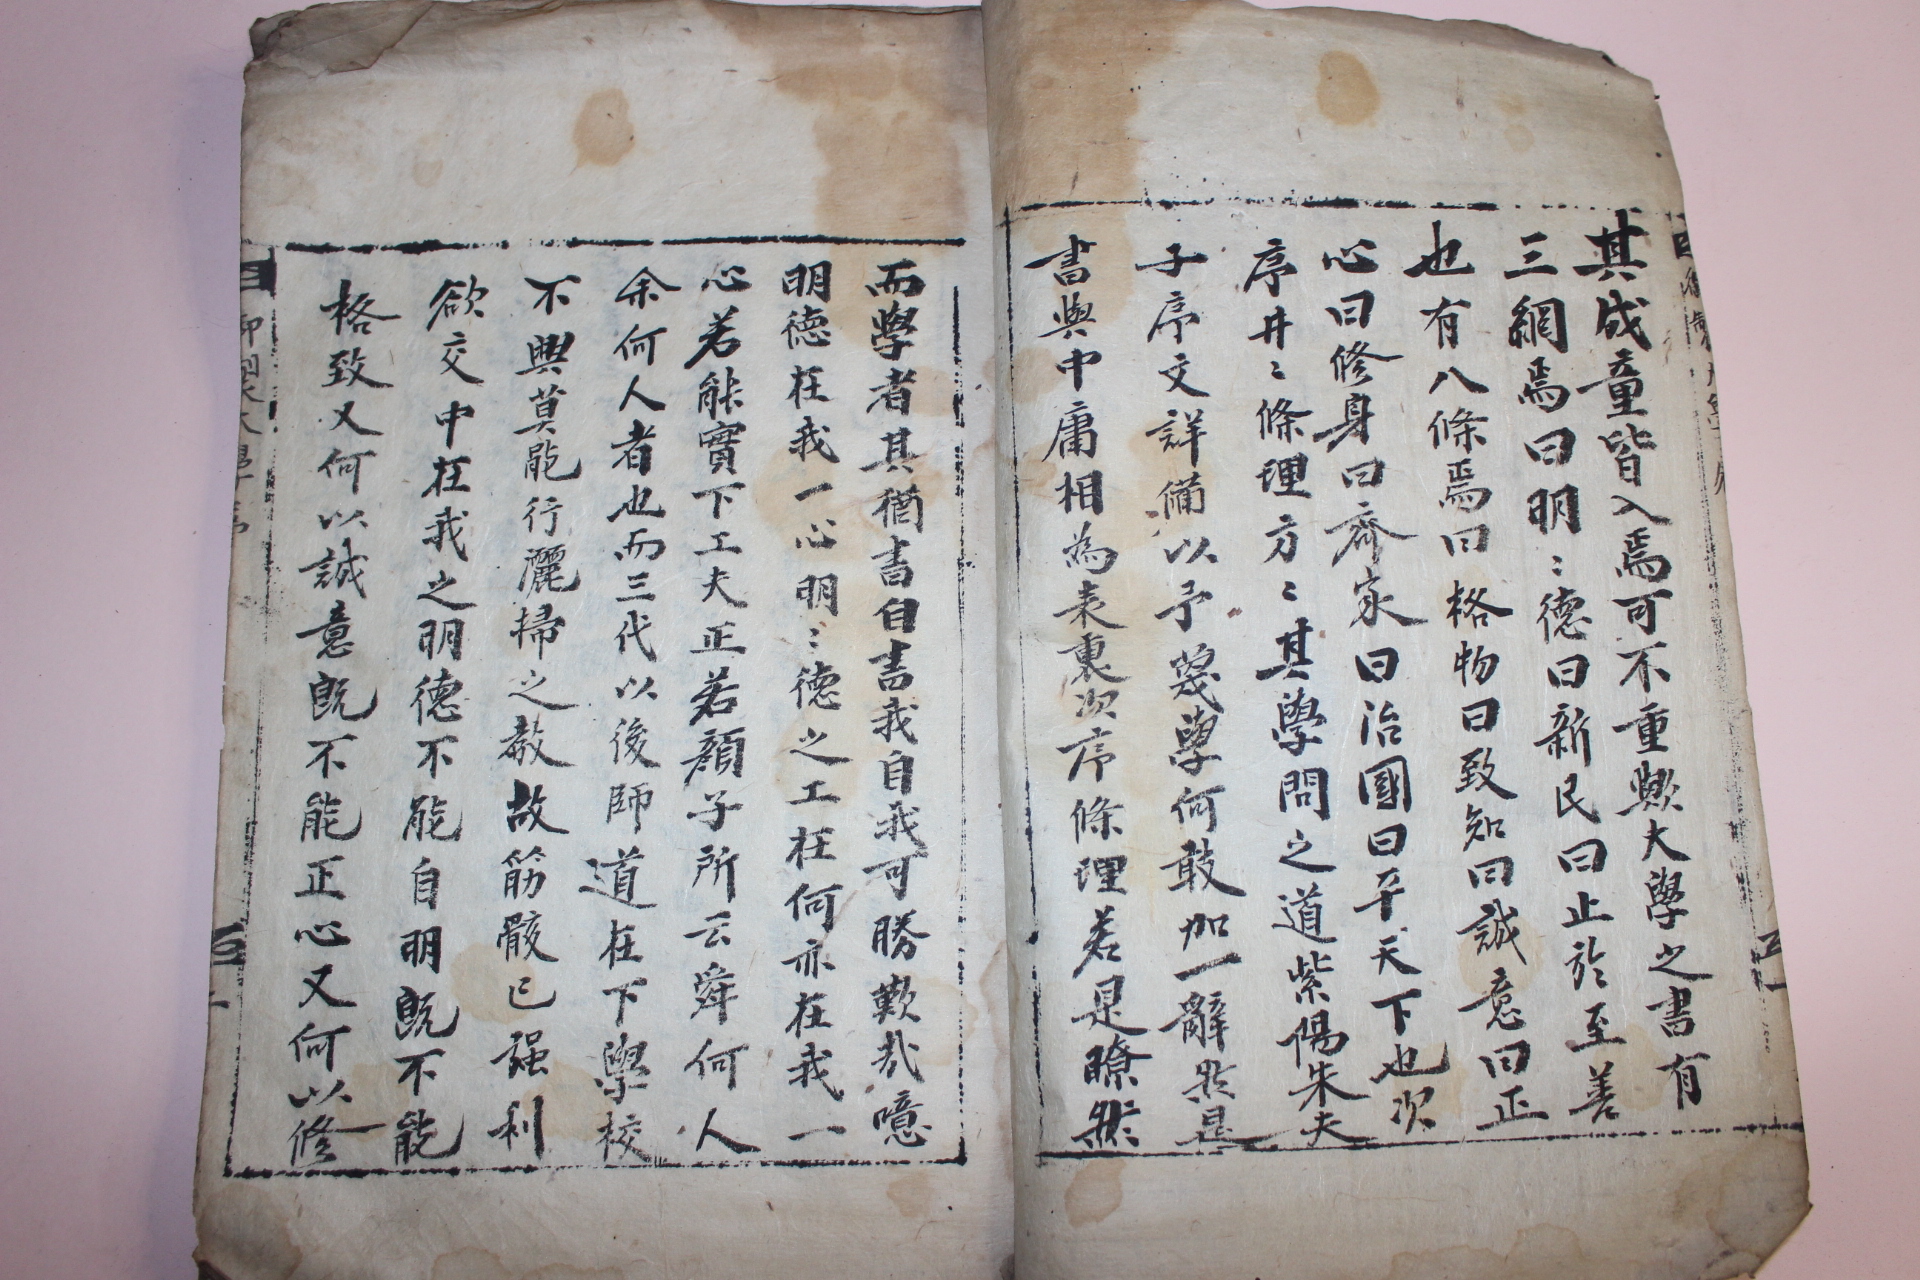 其成童皆入焉可不重歟大學之書有
三綱焉曰明〻德曰新民曰止於至善
也有八條焉曰格物曰致知曰誠意曰正
心曰修身曰齊家曰治國曰平天下也次
序井〻條理方〻其學問之道紫陽朱夫
子序文詳備以予蔑學何敢加一辭然是
書與中庸相為表裏次序條理若是瞭然
而學者其猶書自書我自我可勝歎哉噫
明德在我一心明〻德之工在何亦在我一
心若能實下工夫正若顔子所云舜何人
余何人者也而三代以後師道在下學校
不興莫能行灑掃之教故筋骸已强利
欲交中在我之明德不能自明旣不能
格致又何以誠意旣不能正心又何以修
御製大學序